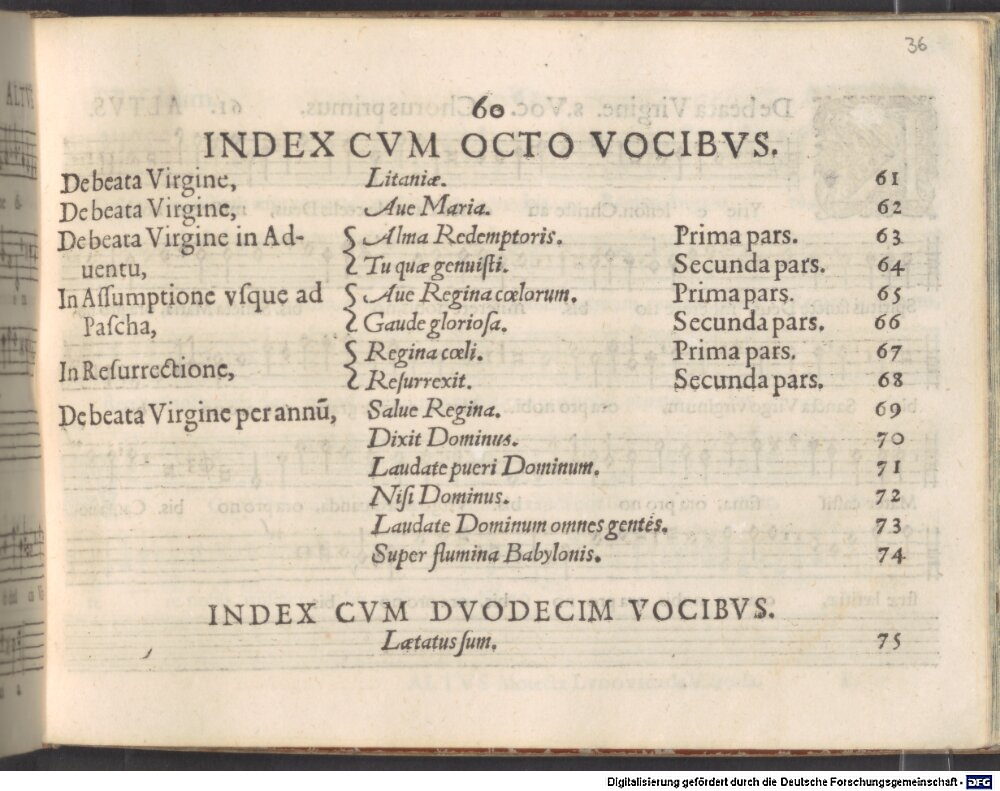 36
60
INDEX CVM OCTO VOCIBVS.
De beata Virgine, Litaniæ. 61
De beata Virgine, Aue Maria. 62
De beata Virgine in Ad- Alma Redemptoris. Prima pars. 63
uentu, Tu quæ genuiſti. Secunda pars. 64
In Aſſumptione vſque ad Aue Regina cœlorum. Prima pars. 65
Paſcha, Gaude glorioſa. Secunda pars. 66
Regina cœli. Prima pars. 67
In Reſurrectione, Reſurrexit. Secunda pars. 68
De beata Virgine per annū, Salue Regina. 69
Dixit Dominus. 70
Laudate pueri Dominum. 71
Niſi Dominus. 72
Laudate Dominum omnes gentes. 73
Super flumina Babylonis. 74
INDEX CVM DVODECIM VOCIBVS.
Lætatus ſum. 75
Digitalisierung gefördert durch die Deutsche Forschungsgemeinschaft - DFG